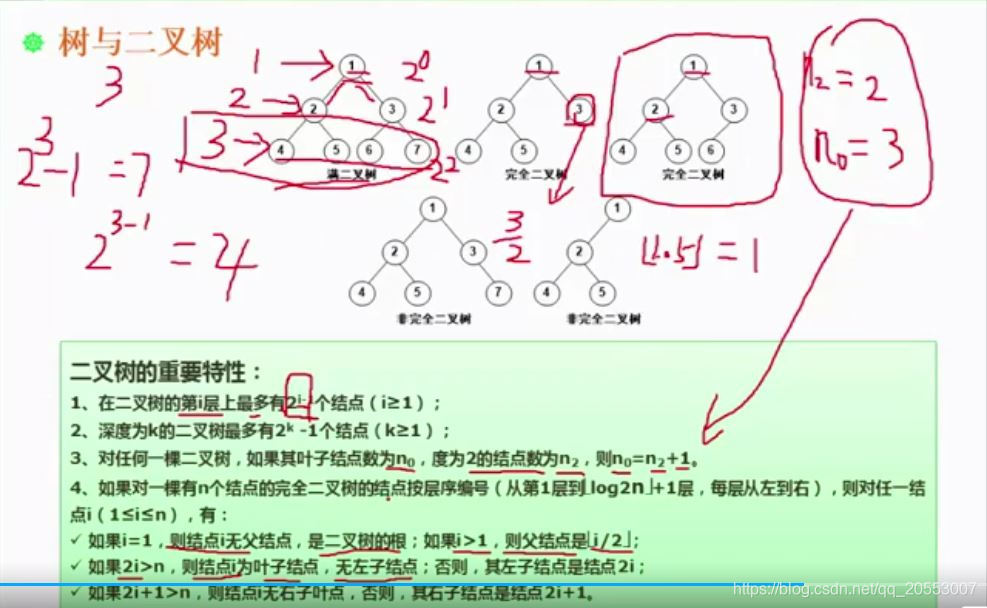 树与二叉树
3
2³-1=7
2³⁻¹=4
1
2
3
2⁰
2¹
2²
1
2 3
4 5 6 7
满二叉树
1
2 3
4 5
完全二叉树
1
2 3
4 5 6
完全二叉树
n₂=2
n₀=3
1
2 3
4 5 7
非完全二叉树
3/2
1
2
4 5
非完全二叉树
⌊1.5⌋=1
二叉树的重要特性：
1、在二叉树的第i层上最多有2ⁱ⁻¹个结点（i≥1）；
2、深度为k的二叉树最多有2ᵏ -1个结点（k≥1）；
3、对任何一棵二叉树，如果其叶子结点数为n₀，度为2的结点数为n₂，则n₀=n₂+1。
4、如果对一棵有n个结点的完全二叉树的结点按层序编号（从第1层到⌊log2n⌋+1层，每层从左到右），则对任一结
点i（1≤i≤n），有：
✓ 如果i=1，则结点i无父结点，是二叉树的根；如果i>1，则父结点是⌊i/2⌋；
✓ 如果2i>n，则结点i为叶子结点，无左子结点；否则，其左子结点是结点2i；
✓ 如果2i+1>n，则结点i无右子叶点，否则，其右子结点是结点2i+1。
https://blog.csdn.net/qq_20553007